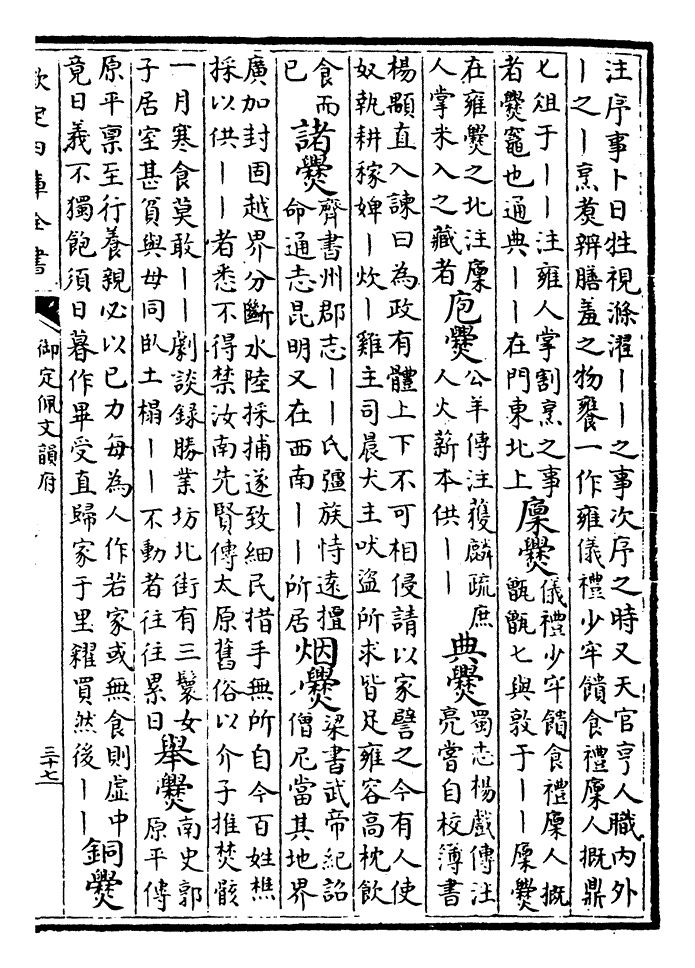 注序事卜日牲視滌濯丨丨之事次序之時又天官亨人職内外
丨之丨烹煑辨膳羞之物饔一作雍儀禮少牢饋食禮廩人摡鼎
匕俎于丨丨注雍人掌割烹之事
者爨竈也通典丨丨在門東北上
廩爨
儀禮少牢饋食禮廩人摡
甑甗匕與敦于丨丨廩爨
在雍爨之北注廩
人掌米入之藏者
庖爨
公羊傳注獲麟疏庶
人火薪本供丨丨
典爨
蜀志楊戲傳注
亮嘗自校簿書
楊顒直入諫曰為政有體上下不可相侵請以家譬之今有人使
奴執耕稼婢丨炊丨雞主司晨犬主吠盜所求皆足雍容高枕飲
食而
已
諸爨
齊書州郡志丨丨氏彊族恃遠擅
命通志昆明又在西南丨丨所居
烟爨
梁書武帝紀詔
僧尼當其地界
廣加封固越界分斷水陸採捕遂致細民措手無所自今百姓樵
採以供丨丨者悉不得禁汝南先賢傳太原舊俗以介子推焚骸
一月寒食莫敢丨丨劇談録勝業坊北街有三鬟女
子居室甚貧與母同臥土榻丨丨不動者往往累日
舉爨
南史郭
原平傳
原平禀至行養親必以己力每為人作若家或無食則虛中
竟日義不獨飽須日暮作畢受直歸家于里糴買然後丨丨
銅爨
欽定四庫全書
御定佩文韻府
三十七